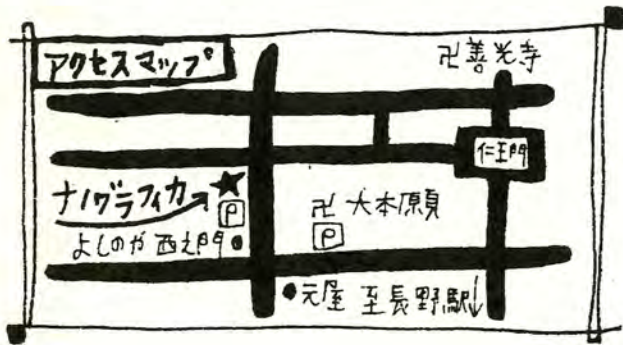 アクセスマップ
卍善光寺
仁王門
ナノグラフィカ
P
卍 大本願
P
よしのや 西之門
元屋 至長野駅↓